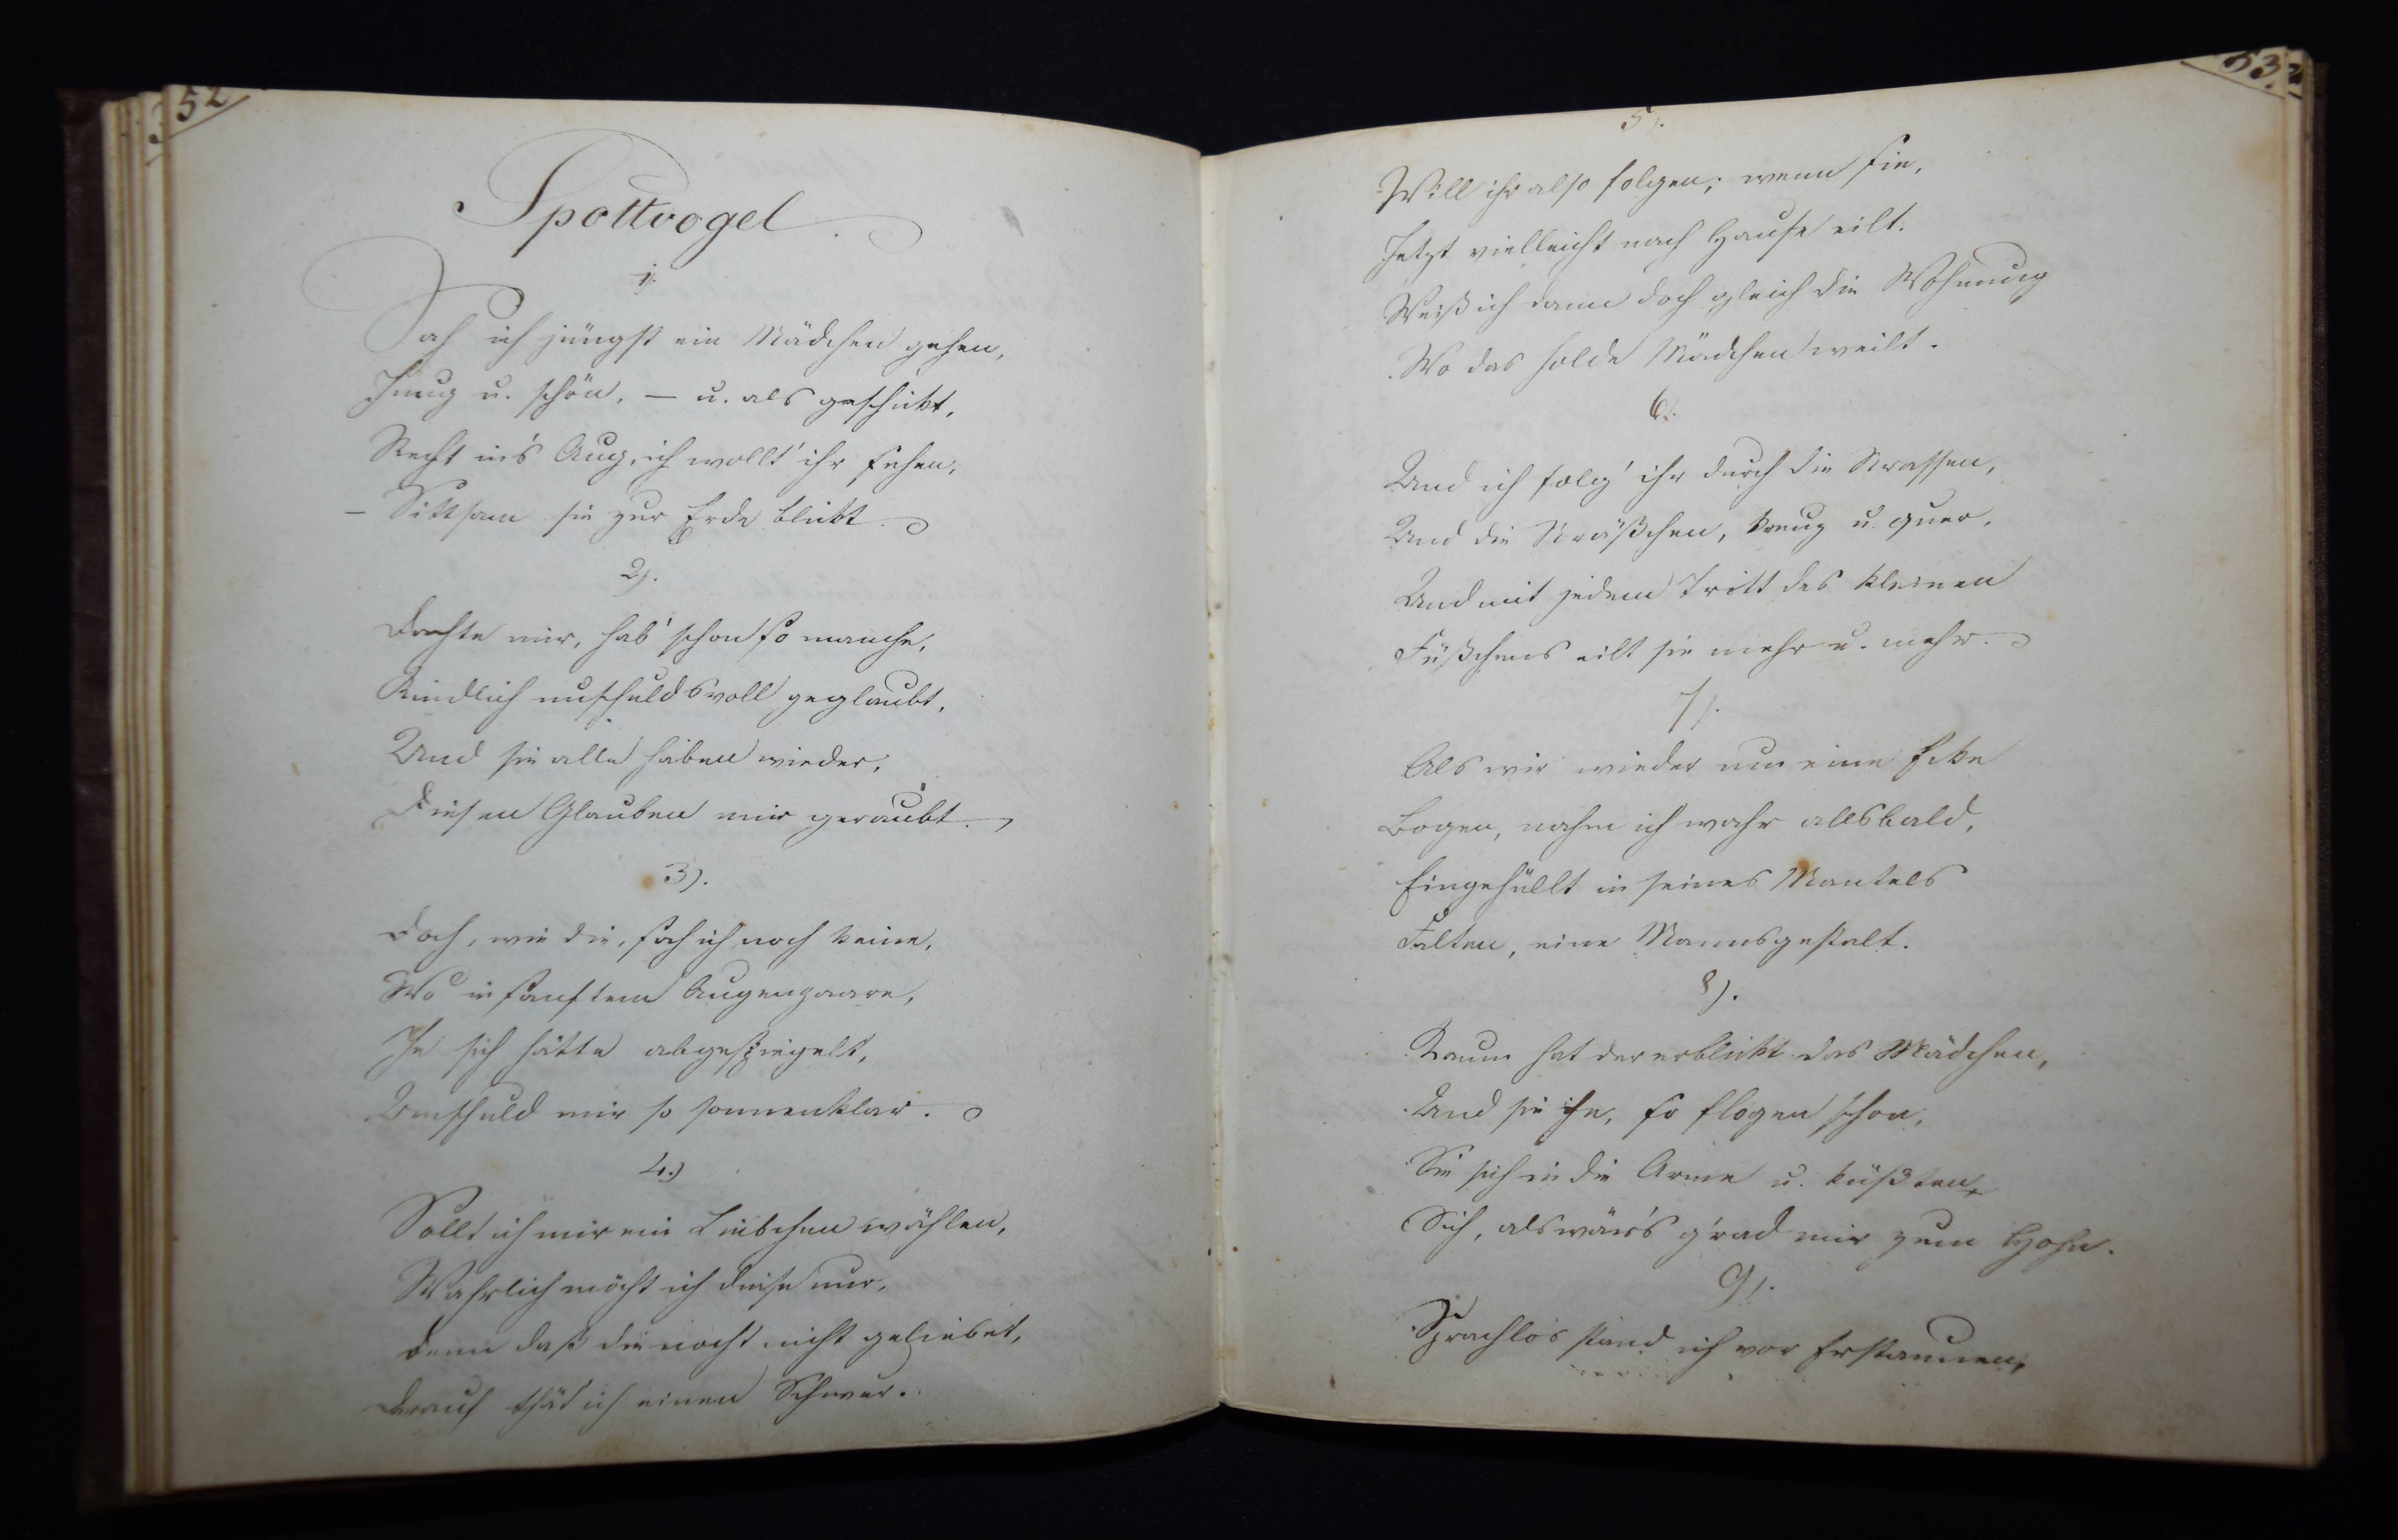 52
Spottvogel.
1).
Sah ich jüngst ein Mädchen gehen,
Jung u. schön, — u. als geschickt,
Recht in's Aug, ich wollt' ihr sehen,
– Sittsam sie zur Erde blickt.
2).
Dachte mir, hab' schon so manche,
Kindlich unschuldsvoll geglaubt,
Und sie alle haben wieder,
Diesen Glauben mir geraubt.
3).
Doch, wie die, sah ich noch keine,
Wo in sanftem Augenpaare,
Je sich hätte abgespiegelt,
Unschuld mir so sonnenklar.
4.)
Sollt ich mir ein Liebchen wählen,
Wahrlich möcht ich diese nur,
Denn daß die noch nicht geliebet,
Darauf thät ich einen Schwur.
53.
5).
Will ihr also folgen; wenn sie,
Jetzt vielleicht nach Hause eilt.
Weiß ich dann doch gleich die Wohnung
Wo das holde Mädchen weilt.
6).
Und ich folg' ihr durch die Strassen,
Und die Sträßchen, kreuz u. quer,
Und mit jedem Tritt des kleinen
Füßchens eilt sie mehr u. mehr.
7).
Als wir wieder um eine Ecke
Bogen, nahm ich wahr allsbald,
Eingehüllt in seines Mantels
Falten, eine Mannsgestalt.
8).
Kaum hat der erblickt das Mädchen,
Und sie ihn, so flogen schon,
Sie sich in die Arme u. küßten,
Sich, als wär's g'rad mir zum Hohn.
9).
Sprachlos stand ich vor Erstaunen,